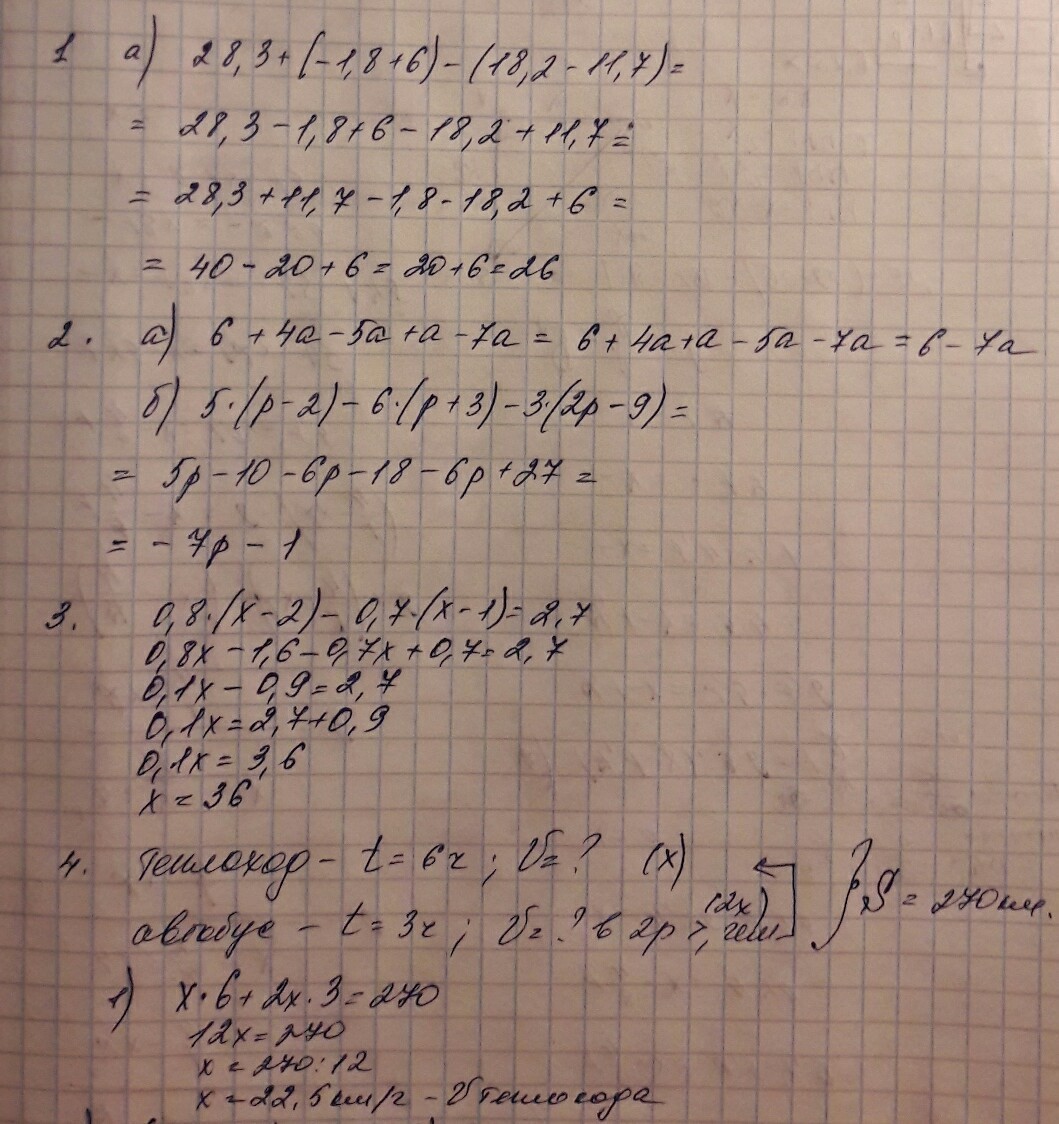 1 а) 28,3+(-1,8+6)-(18,2-11,7)=
= 28,3-1,8+6-18,2+11,7=
= 28,3+11,7-1,8-18,2+6=
= 40-20+6=20+6=26
2. а) 6+4а-5а+а-7а = 6+4а+а-5а-7а=6-7а
б) 5·(р-2)-6·(р+3)-3·(2р-9)=
= 5р-10-6р-18-6р+27=
= -7р-1
3. 0,8·(х-2)-0,7·(х-1)=2,7
0,8х-1,6-0,7х+0,7=2,7
0,1х-0,9=2,7
0,1х=2,7+0,9
0,1х=3,6
х=36
4. теплоход - t=6ч; V=? (х)
автобус - t=3ч; V=? в 2р >, чем (2х) } S=270км.
1) х·6+2х·3=270
12х=270
х=270:12
х=22,5км/ч - V теплохода